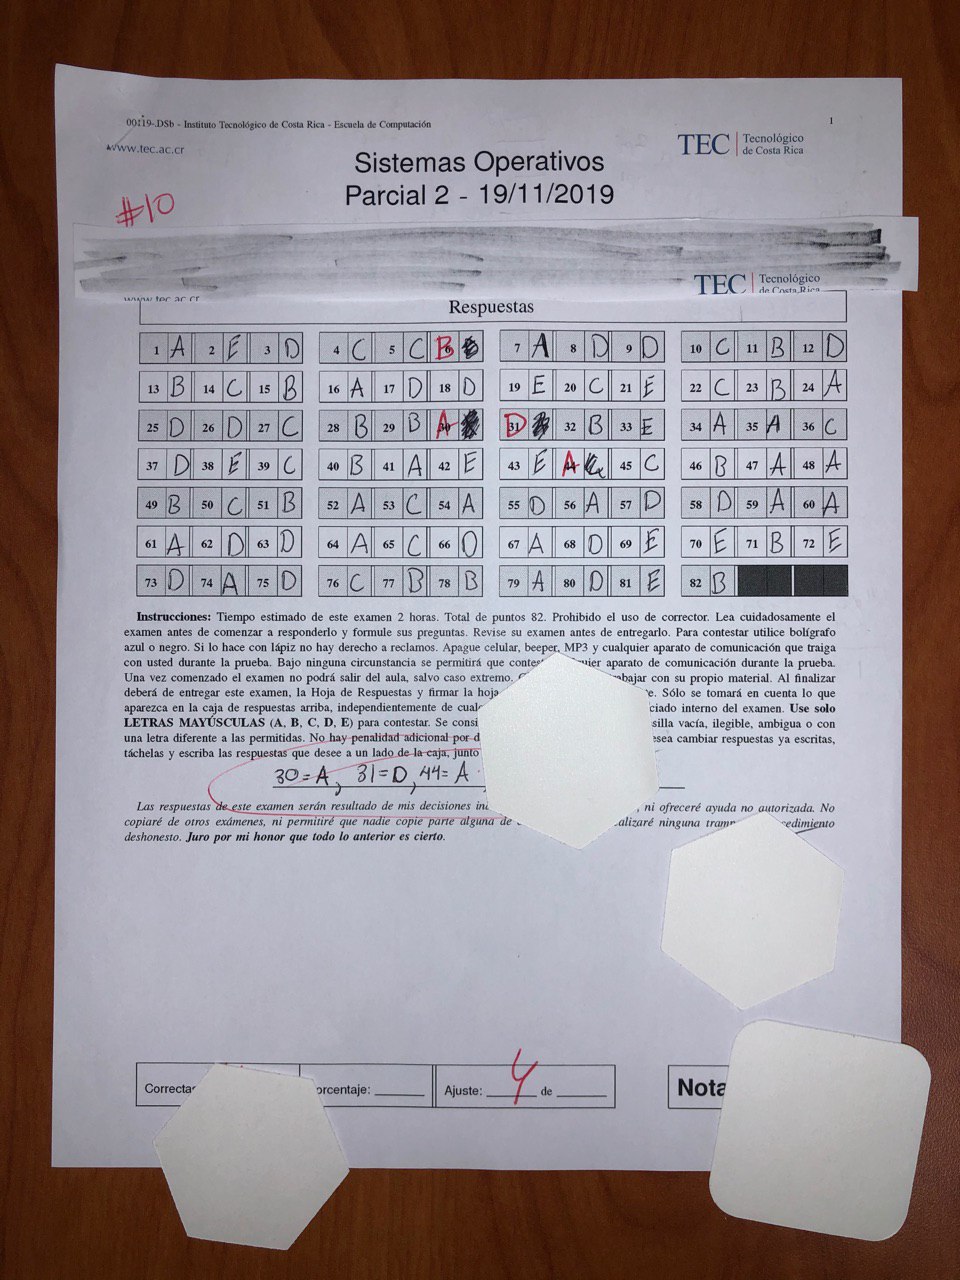 00119-.DSb - Instituto Tecnológico de Costa Rica - Escuela de Computación 1
www.tec.ac.cr
TEC | Tecnológico de Costa Rica
Sistemas Operativos
Parcial 2 - 19/11/2019
#10
TEC | Tecnológico
de Costa Rica
www.tec.ac.cr
Respuestas
1 A 2 E 3 D 4 C 5 C 6 B 7 A 8 D 9 D 10 C 11 B 12 D
13 B 14 C 15 B 16 A 17 D 18 D 19 E 20 C 21 E 22 C 23 B 24 A
25 D 26 D 27 C 28 B 29 B 30 A 31 D 32 B 33 E 34 A 35 A 36 C
37 D 38 E 39 C 40 B 41 A 42 E 43 E 44 A 45 C 46 B 47 A 48 A
49 B 50 C 51 B 52 A 53 C 54 A 55 D 56 A 57 D 58 D 59 A 60 A
61 A 62 D 63 D 64 A 65 C 66 D 67 A 68 D 69 E 70 E 71 B 72 E
73 D 74 A 75 D 76 C 77 B 78 B 79 A 80 D 81 E 82 B
Instrucciones: Tiempo estimado de este examen 2 horas. Total de puntos 82. Prohibido el uso de corrector. Lea cuidadosamente el
examen antes de comenzar a responderlo y formule sus preguntas. Revise su examen antes de entregarlo. Para contestar utilice bolígrafo
azul o negro. Si lo hace con lápiz no hay derecho a reclamos. Apague celular, beeper, MP3 y cualquier aparato de comunicación que traiga
con usted durante la prueba. Bajo ninguna circunstancia se permitirá que contes uier aparato de comunicación durante la prueba.
Una vez comenzado el examen no podrá salir del aula, salvo caso extremo. abajar con su propio material. Al finalizar
deberá de entregar este examen, la Hoja de Respuestas y firmar la hoja e. Sólo se tomará en cuenta lo que
aparezca en la caja de respuestas arriba, independientemente de cual ciado interno del examen. Use solo
LETRAS MAYÚSCULAS (A, B, C, D, E) para contestar. Se consi silla vacía, ilegible, ambigua o con
una letra diferente a las permitidas. No hay penalidad adicional por d esea cambiar respuestas ya escritas,
táchelas y escriba las respuestas que desee a un lado de la caja, junto
30=A, 31=D, 44=A
Las respuestas de este examen serán resultado de mis decisiones in , ni ofreceré ayuda no autorizada. No
copiaré de otros exámenes, ni permitiré que nadie copie parte alguna de alizaré ninguna tramp cedimiento
deshonesto. Juro por mi honor que todo lo anterior es cierto.
Correctas orcentaje: Ajuste: 4 de Nota